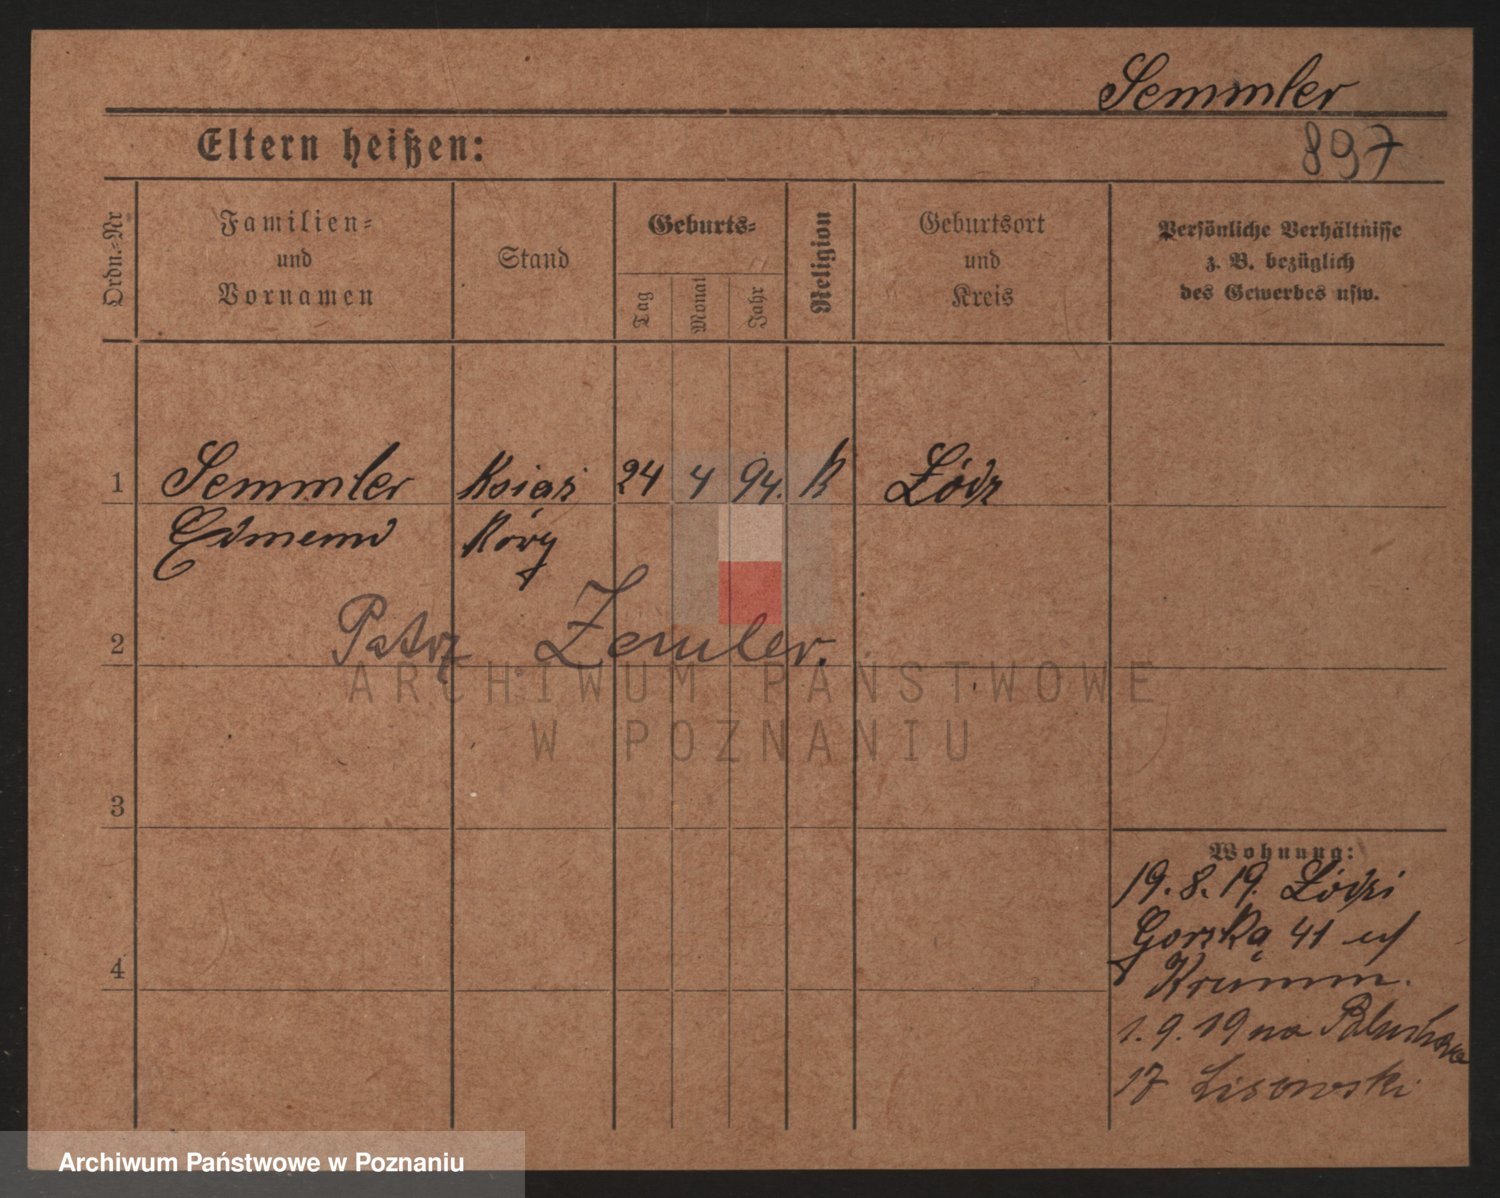 Semmler
Eltern heißen:
897
Ordn.=Nr
Familien=
und
Vornamen
Stand
Geburts=
Tag
Monat
Jahr
Religion
Geburtsort
und
Kreis
Persönliche Verhältnisse
z. B. bezüglich
des Gewerbes usw.
1 Semmler 24 4 94. K Łódz
Edmund
2 Patrz Zemler.
ARCHIWUM PAŃSTWOWE
W POZNANIU
3
Wohnung:
19. 8. 19. Łódzi
Gorska 41 u/
4
Krumm.
1. 9. 19 na
17 Lisowski
Archiwum Państwowe w Poznaniu